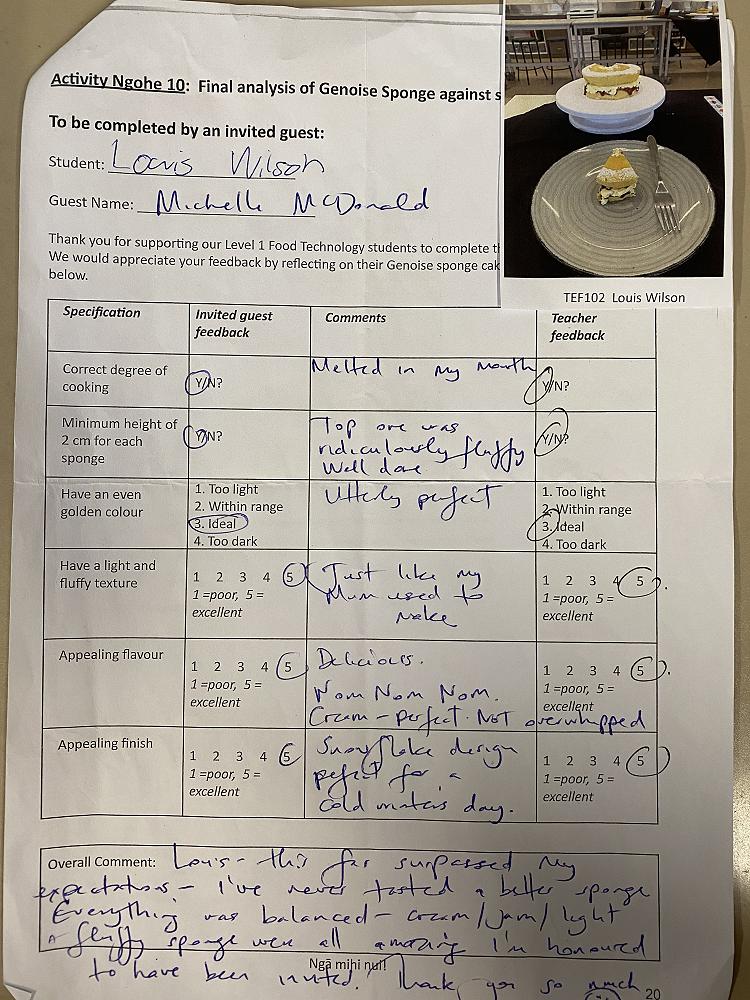 Activity Ngohe 10: Final analysis of Genoise Sponge against s
To be completed by an invited guest:
Student: Louis Wilson
Guest Name: Michelle McDonald
Thank you for supporting our Level 1 Food Technology students to complete th
We would appreciate your feedback by reflecting on their Genoise sponge cak
below.
TEF102 Louis Wilson
Specification
Invited guest
feedback
Comments
Teacher
feedback
Correct degree of
cooking
Y/N?
Melted in my mouth
Y/N?
Minimum height of
2 cm for each
sponge
Y/N?
Top one was
ridiculously fluffy
Well done
Y/N?
Have an even
golden colour
1. Too light
2. Within range
3. Ideal
4. Too dark
Utterly perfect
1. Too light
2. Within range
3. Ideal
4. Too dark
Have a light and
fluffy texture
1 2 3 4 5
1=poor, 5 =
excellent
Just like my
Mum used to
make
1 2 3 4 5
1=poor, 5 =
excellent
Appealing flavour
1 2 3 4 5
1=poor, 5 =
excellent
Delicious.
Nom Nom Nom.
Cream - perfect. Not overwhipped
1 2 3 4 5
1=poor, 5 =
excellent
Appealing finish
1 2 3 4 5
1=poor, 5 =
excellent
Snowflake design
pefect for a
cold winters day.
1 2 3 4 5
1=poor, 5 =
excellent
Overall Comment: Louis - this far surpassed my
expectations - I've never tasted a better sponge
Everything was balanced - cream/jam/light
fluffy sponge were all amazing I'm honoured
to have been invited! Thank you so much
Ngā mihi nui!
20